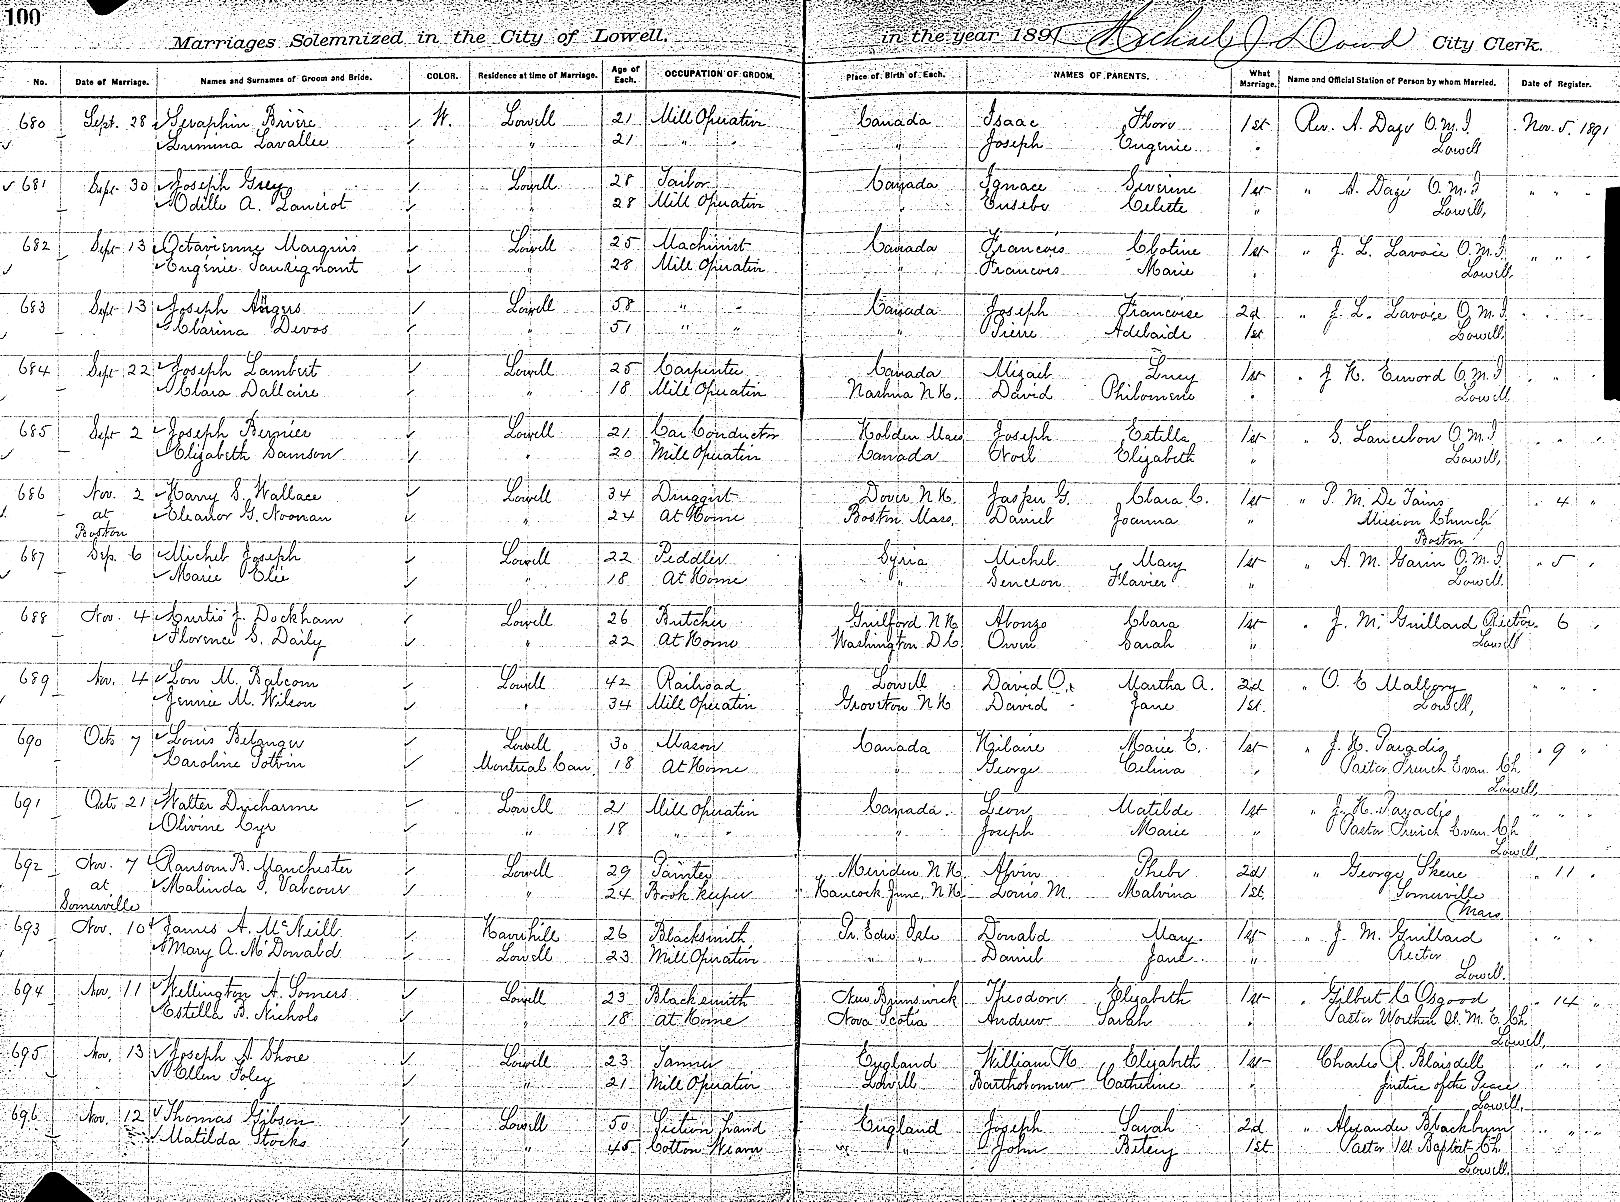 100
Marriages Solemnized in the City of Lowell. in the year 1891 Michael J. Dowd City Clerk.
No. Date of Marriage. Names and Surnames of Groom and Bride. COLOR. Residence at time of Marriage. Age of Each. OCCUPATION OF GROOM. Place of Birth of Each. NAMES OF PARENTS. What Marriage. Name and Official Station of Person by whom Married. Date of Register.
680 Sept. 28 Seraphin Brière W. Lowell 21 Mill Operative Canada Isaac Flore 1st Rev. A. Dazé O.M.I. Nov. 5. 1891
Lumina Lavallee " 21 " " " Joseph Eugenie " Lowell
681 Sept 30 Joseph Grey Lowell 28 Tailor Canada Ignace Severine 1st " A. Dazé O.M.I " " "
Odille A. Lanciot " 28 Mill Operative " Eusebe Celeste " Lowell,
682 Sept 13 Octavienne Marquis Lowell 25 Machinist Canada Francois Clotine 1st " J. L. Lavoie O.M.I. " " "
Eugénie Tousignant " 28 Mill Operative " Francois Marie " Lowell.
683 Sept 13 Joseph Angers Lowell 58 " " Canada Joseph Francoise 2d " J. L. Lavoie O.M.I. " " "
Clarina Devos " 51 " " " Pierre Adelaide 1st Lowell,
684 Sept 22 Joseph Lambert Lowell 25 Carpenter Canada Lucy 1st " J. O.M.I " " "
Clara Dallaire " 18 Mill Operative Nashua N.H. David Philomene " Lowell
685 Sept 2 Joseph Bernier Lowell 21 Car Conductor Holden Mass Joseph Estella 1st " O.M.I " " "
Elizabeth Samson " 20 Mill Operative Canada Noel Elizabeth " Lowell,
686 Nov. 2 Harry S. Wallace Lowell 34 Druggist Dover N.H. Jasper G. Clara C. 1st " P. M. De " 4 "
at Eleanor G. Noonan " 24 At Home Boston Mass. Daniel Joanna " Mission Church
Boston Boston
687 Sep. 6 Michel Joseph Lowell 22 Peddler Syria Michel Mary 1st " A. M. Garin O.M.I " 5 "
Marie Elie " 18 At Home " Flavier " Lowell.
688 Nov. 4 Curtis J. Dockham Lowell 26 Butcher Guilford N.H. Alonzo Clara 1st " J. M. Guillard Rector " 6 "
Florence S. Daily " 22 At Home Washington D.C. Owen Sarah " Lowell
689 Nov. 4 Lon M. Balcom Lowell 42 Railroad Lowell David O. Martha A. 2d " O. E Mallory " " "
Jennie M. Wilson " 34 Mill Operative Groveton N.H. David Jane 1st. Lowell,
690 Oct. 7 Louis Belanger Lowell 30 Mason Canada Hilaire Marie E. 1st " J. H. Paradis " 9 "
Caroline Potvin Montreal Can. 18 At Home " George Celina " Pastor French Evan. Ch.
Lowell,
691 Oct. 21 Walter Ducharme Lowell 21 Mill Operative Canada. Leon Matilde 1st " J. H. Paradis " " "
Olivine Cyr " 18 " " " Joseph Marie " Pastor French Evan. Ch
Lowell,
692 Nov. 7 Ransom B. Manchester Lowell 29 Painter Meriden N.H. Alvin Phebe 2d " George Skene " 11 "
at Malinda J. Valcour " 24 Book keeper Hancock Junc, N.H. Louis M. Malvina 1st. Somerville
Somerville Mass.
693 Nov. 10 James A. McNeill Haverhill 26 Blacksmith Pr. Edw. Isle Donald Mary 1st " J. M. Guillard " " "
Mary A. McDonald Lowell 23 Mill Operative " " Daniel Jane " Rector
Lowell.
694 Nov. 11 Wellington A. Somers Lowell 23 Blacksmith New Brunswick Theodore Elizabeth 1st " Gilbert C. Osgood " 14 "
Estella B. Nichols " 18 At Home Nova Scotia Andrew Sarah " Pastor Worthen St. M. E. Ch.
Lowell,
695 Nov. 13 Joseph A Shore Lowell 23 Tanner England William H Elizabeth 1st Charles R. Blaisdell " " "
Ellen Foley " 21 Mill Operative Lowell Bartholomew Catherine " Justice of the Peace
Lowell,
696 Nov. 12 Thomas Gibson Lowell 50 Section hand England Joseph Sarah 2d " Alexander Blackburn " " "
Matilda Stocks " 45 Cotton Weaver " " John Betsey 1st Pastor 1st Baptist Ch
Lowell